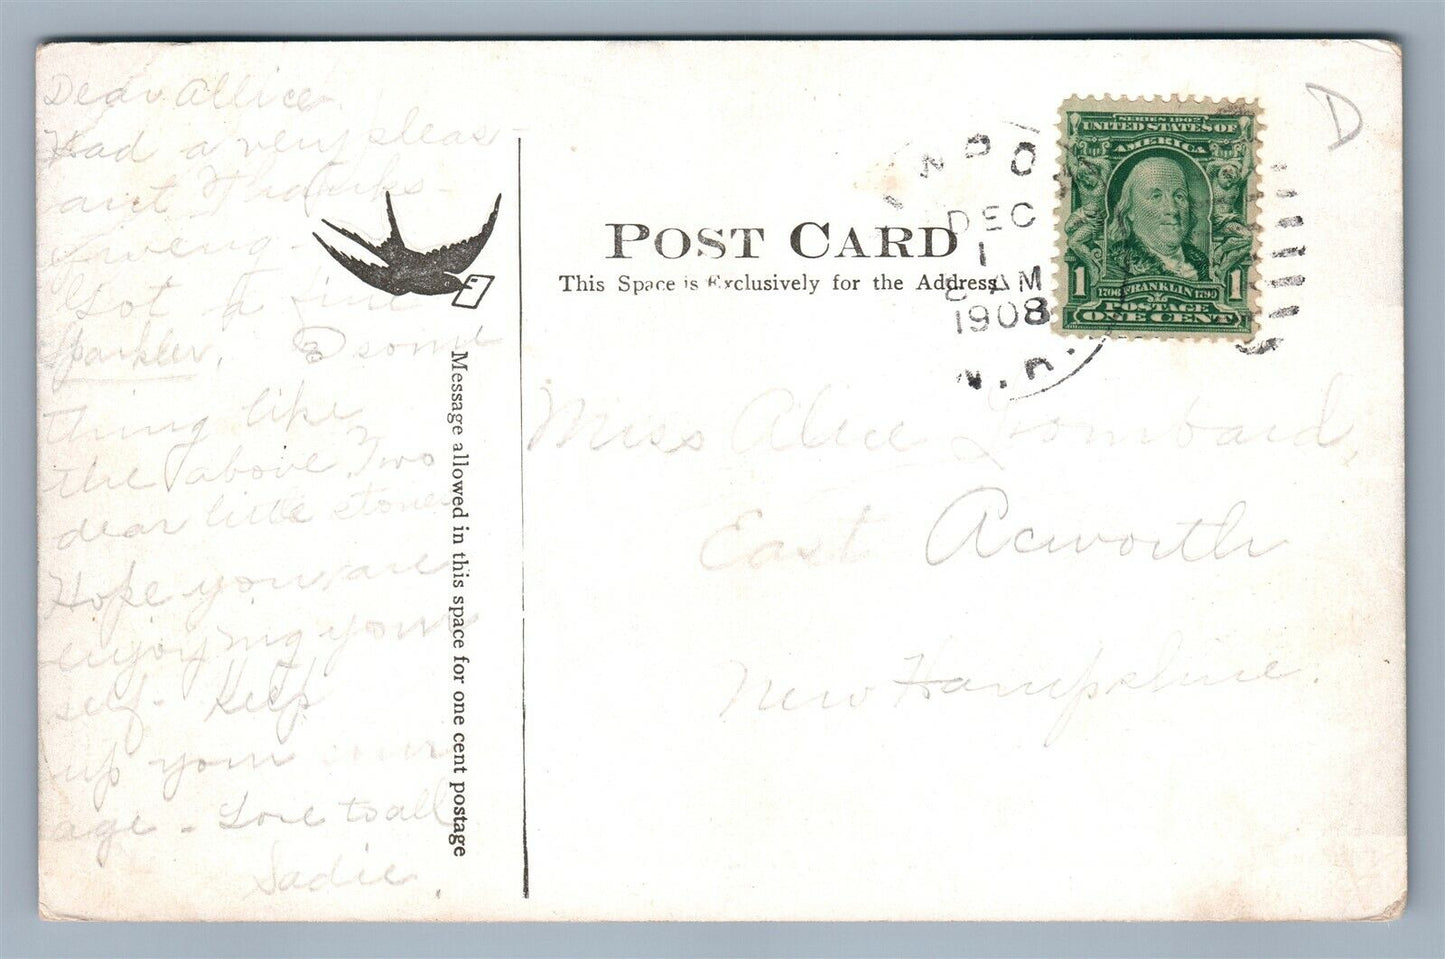 Dear Allice-
Had a very pleas-
ant Thanks-
giveng-
Got a fine
Sparkler, some
thing like
the above. Two
dear little stones
Hope you are
enjoying your
self- Keep
up your cour
age - Love to all
Sadie.
Message allowed in this space for one cent postage
POST CARD
This Space is Exclusively for the Address
NPO
DEC
1
AM
1908
SERIES 1902
UNITED STATES OF
AMERICA
1 1
1706 FRANKLIN 1790
POSTAGE
ONE CENT
D
Miss Alice Lombard,
East Acworth
New Hampshire.